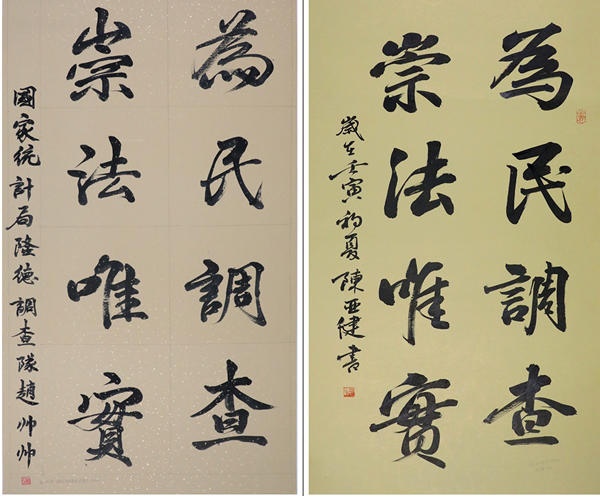 為民調查
崇法唯實
國家統計局隆德調查隊趙帅帅
為民調查
崇法唯實
歲在壬寅初夏陳亚健書